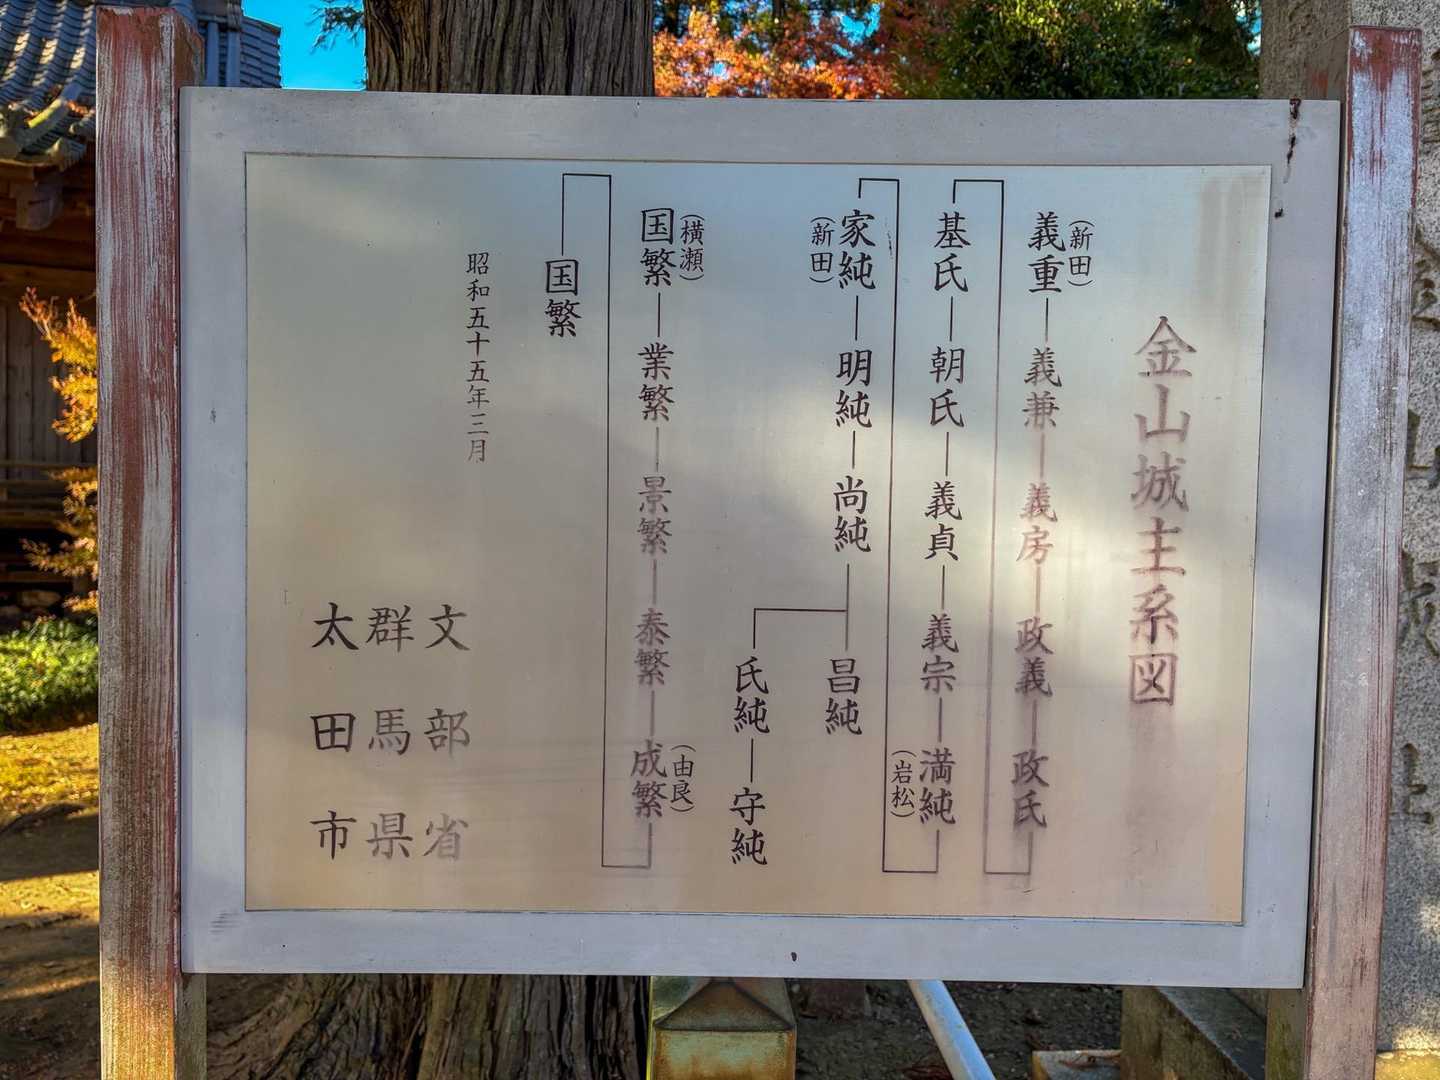 金山城主系図
(新田)
義重―義兼―義房―政義―政氏
基氏―朝氏―義貞―義宗―満純
(岩松)
家純―明純―尚純―昌純
(新田)
氏純―守純
(横瀬)
国繁―業繁―景繁―泰繁―成繁
(由良)
国繁
昭和五十五年三月
文部省
群馬県
太田市